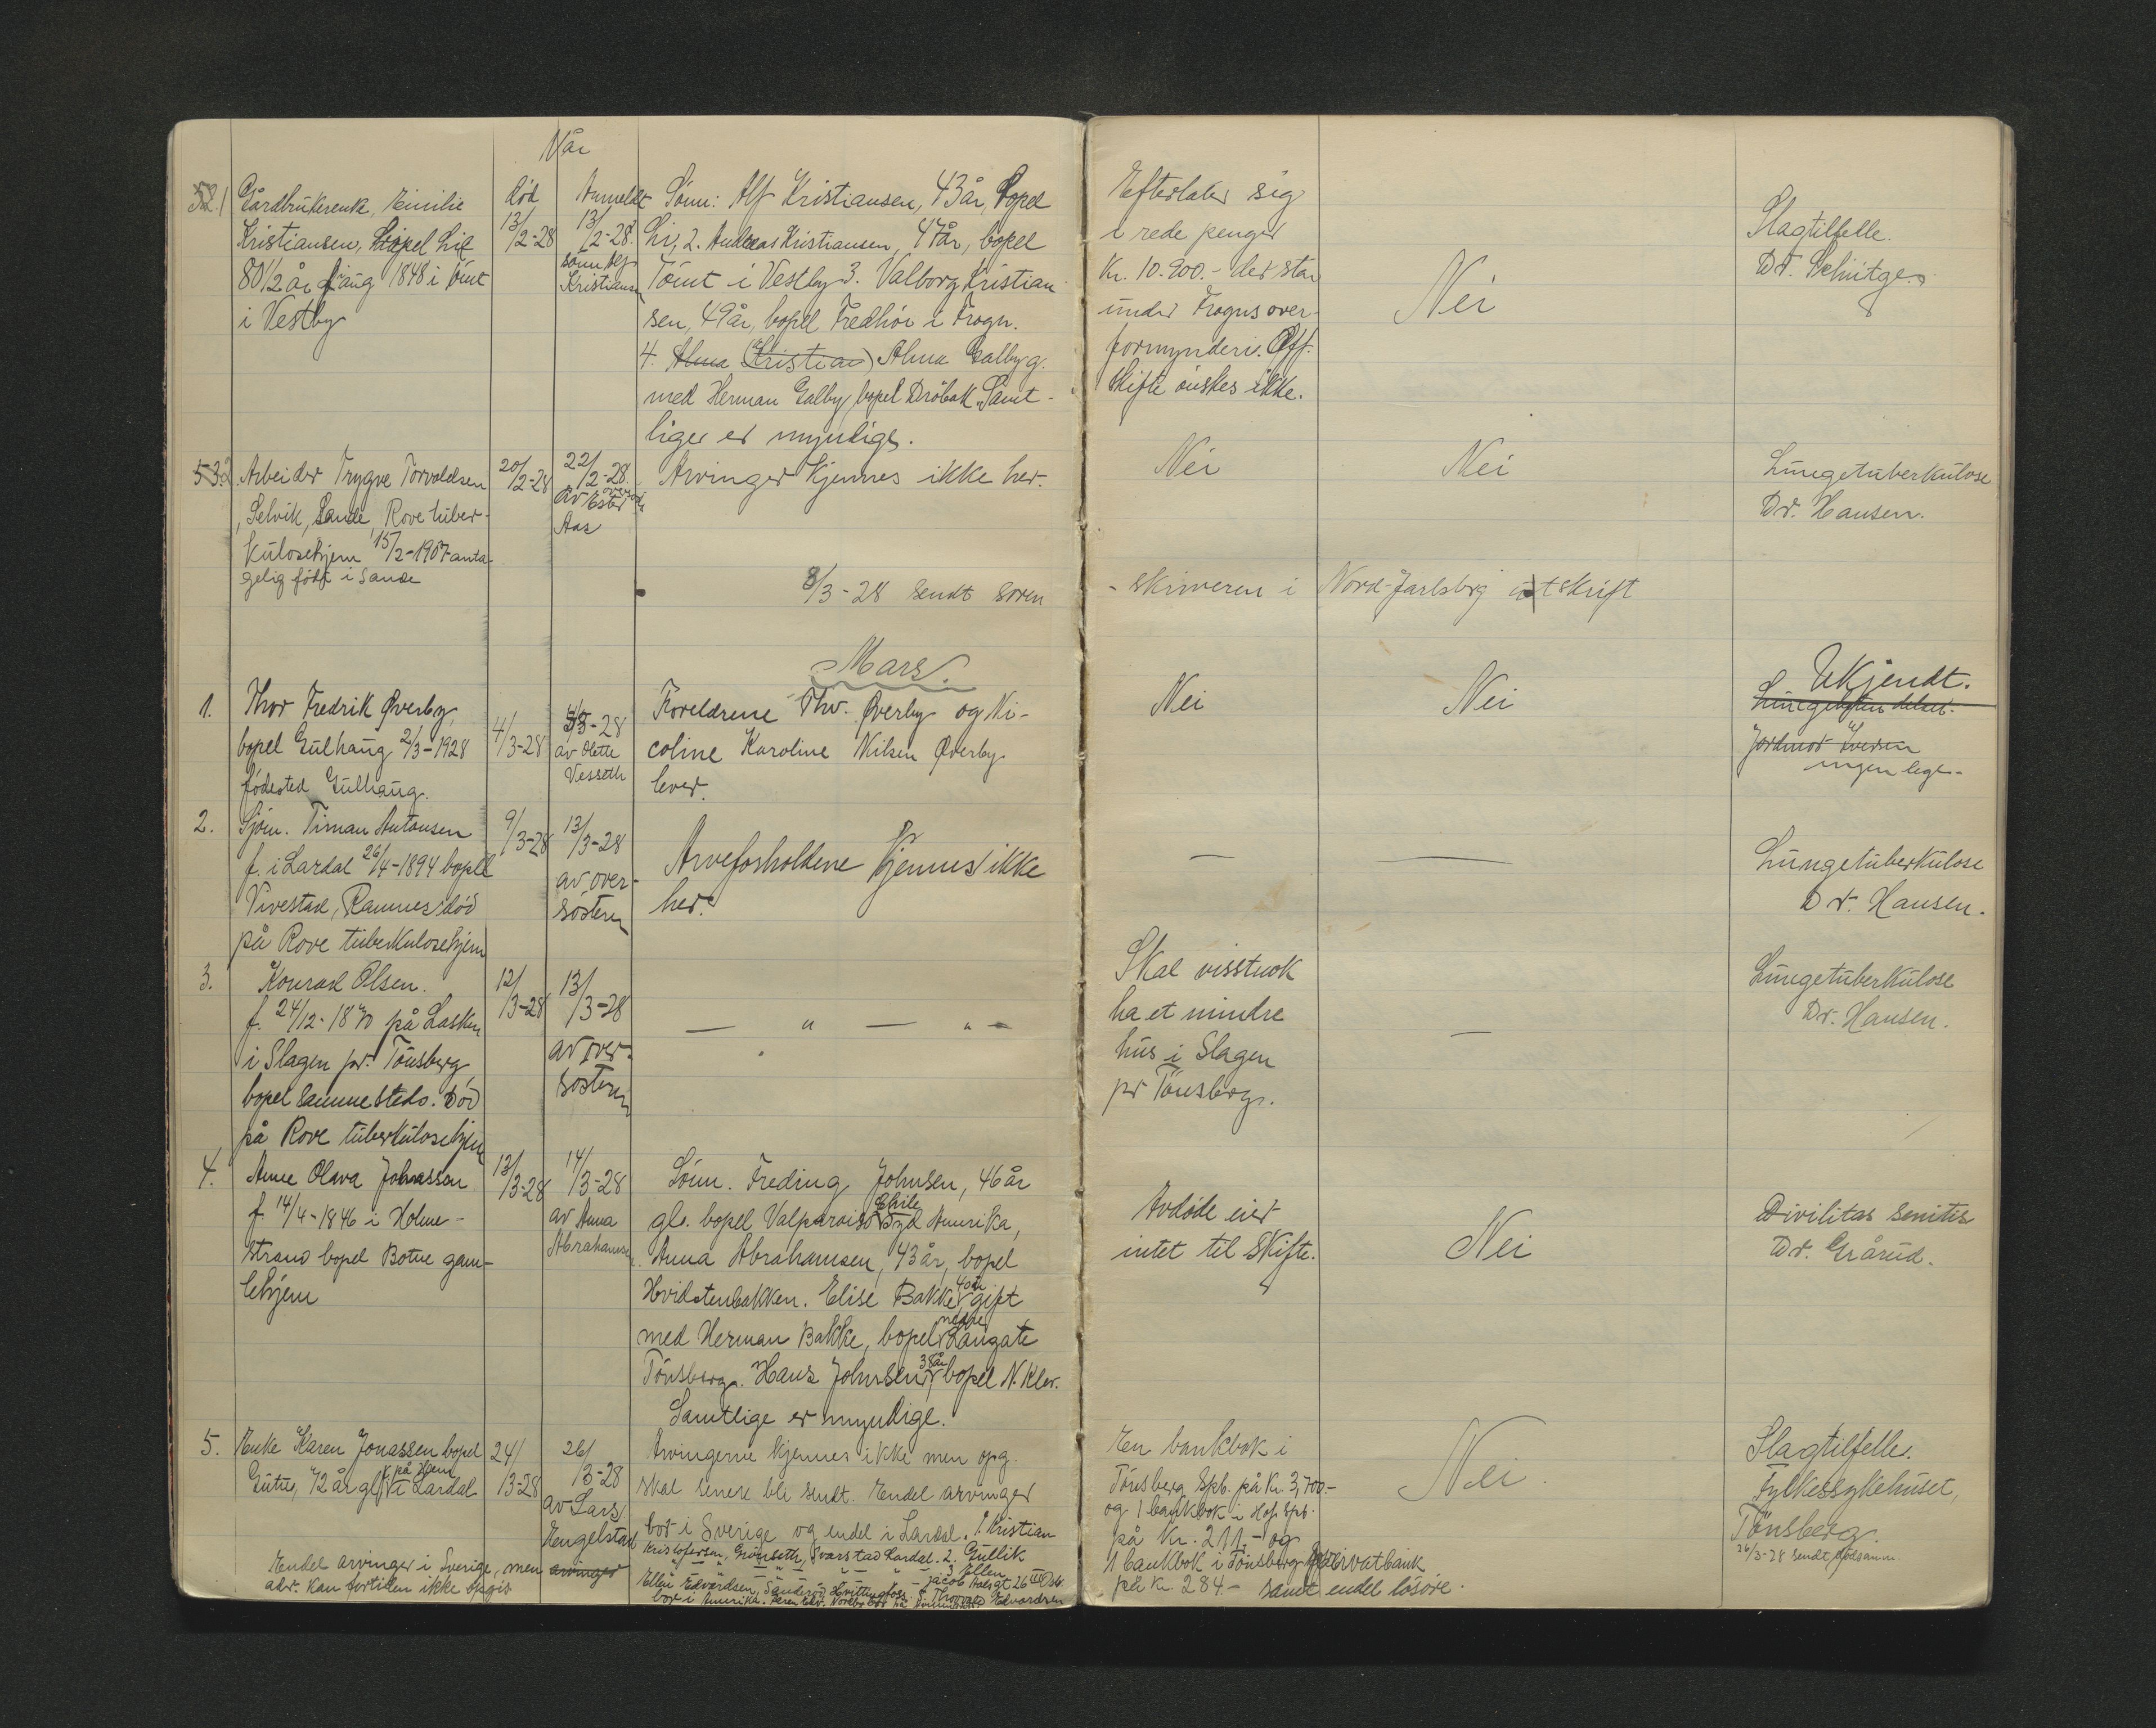 Når
død
Anmeldt
52.1
Gårdbrukerenke, Emilie
Kristiansen, bopel Lie
80 1/2 år f. aug 1848 i Tömt
i Vestby
13/2-28
13/2-28.
sønn Alf
Kristiansen
Sönn: Alf Kristiansen, 43 år, bopel
Li, 2. Andreas Kristiansen, 47 år, bopel
Tömt i Vestby 3. Valborg Kristian
sen, 49 år, bopel Fredhöi i Frogn.
4. Alma (Kristian) Alma Galby g.
med Herman Galby, bopel Dröbak. Samt-
lige er myndige.
Efterlater sig
i rede penger
Kr. 10.900.- der står
under Frogns over-
formynderi. Off.
skifte önskes ikke.
Nei
Slagtilfelle.
Dr.
53.2
Arbeider Trygve Torvaldsen
, Selvik, Sande, Rove tuber-
kulosehjem 15/2-1907 anta-
gelig födt i Sande
20/2-28
22/2-28.
av Ester
Aas
Arvinger kjennes ikke her.
Nei
Nei
Lungetuberkulose
Dr. Hansen.
8/3-28 sendt soren
-skriveren i Nord-Jarlsberg utskrift
Mars.
1.
Thor Fredrik Øverby,
bopel Gulhaug 2/3-1928
födested Gulhaug.
4/3-28
5/3-28
av Olette
Vesseth
Foreldrene Thv. Øverby og Ni-
coline Karoline Nilsen Øverby
lever.
Nei
Nei
Ukjendt.
Jordmor Iversen
ingen lege-
2.
Sjöm. Timan Antonsen
f. i Lardal 26/4-1894 bopel
Vivestad, Ramnes död
på Rove tuberkulosehjem
9/3-28
13/3-28
av over-
sösteren
Arveforholdene kjennes ikke
her.
—
—
Lungetuberkulose
Dr. Hansen.
3.
Konrad Olsen.
f. 24/12-1870 på Lasken
i Slagen pr. Tönsberg,
bopel sammesteds. Död
på Rove tuberkulosehjem
12/3-28
13/3-28
av over-
sösteren
— " — " —
Skal visstnok
ha et mindre
hus i Slagen
pr Tönsberg.
—
Lungetuberkulose
Dr. Hansen.
4.
Anne Olava Johnasson
f. 14/4-1846 i Holme-
strand bopel Botne gam-
lehjem
13/3-28
14/3-28
av Anna
Abrahamsen
Sönn. Freding Johnsen, 46 år
gl. bopel Valparaiso Chile Syd Amerika,
Anna Abrahamsen, 43 år, bopel
Hvidstenbakken. Elise Bakke 40 år gift
med Herman Bakke, bopel nedre Langgate
Tönsberg. Hans Johnsen 38 år, bopel N. Klev.
Samtlige er myndige.
Avdöde eier
intet til skifte.
Nei
Divilitas senitis
Dr. Grårud.
5.
Enke Karen Jonassen bopel
Gutu, 72 år gl. f. på Hem i Lardal
24/3-28
26/3-28
av Lars
Hengelstad
Arvingerne kjennes ikke men opg.
skal senere bli sendt. Endel arvinger
bor i Sverige og endel i Lardal. 1. Kristian
Kristofersen, Grönseth, Svarstad Lardal. 2. Gullik
Ellen Edvardsen, Sanderöd Hvittingfoss. Jacob
bor i Amerika.
Endel arvinger i Sverige, men arvinger
adr. kan fortiden ikke opgis
En bankbok i
Tönsberg Spb. på Kr. 3,700.-
og 1 bankbok i Hof Spb.
på Kr. 211,- og
1 bankbok i Tönsberg Privatbank
på Kr 284.- samt endel lösöre.
Nei.
Slagtilfelle.
Fylkessykehuset,
Tönsberg.
26/3-28 sendt dödsanm.